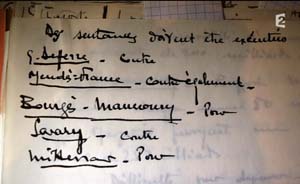 2
Des sentences doivent être exécutées
G. Deferre - Contre
Mendès-France - Contre également.
Bourgès - Maunoury - Pour
Savary - Contre
Mitterrand - Pour